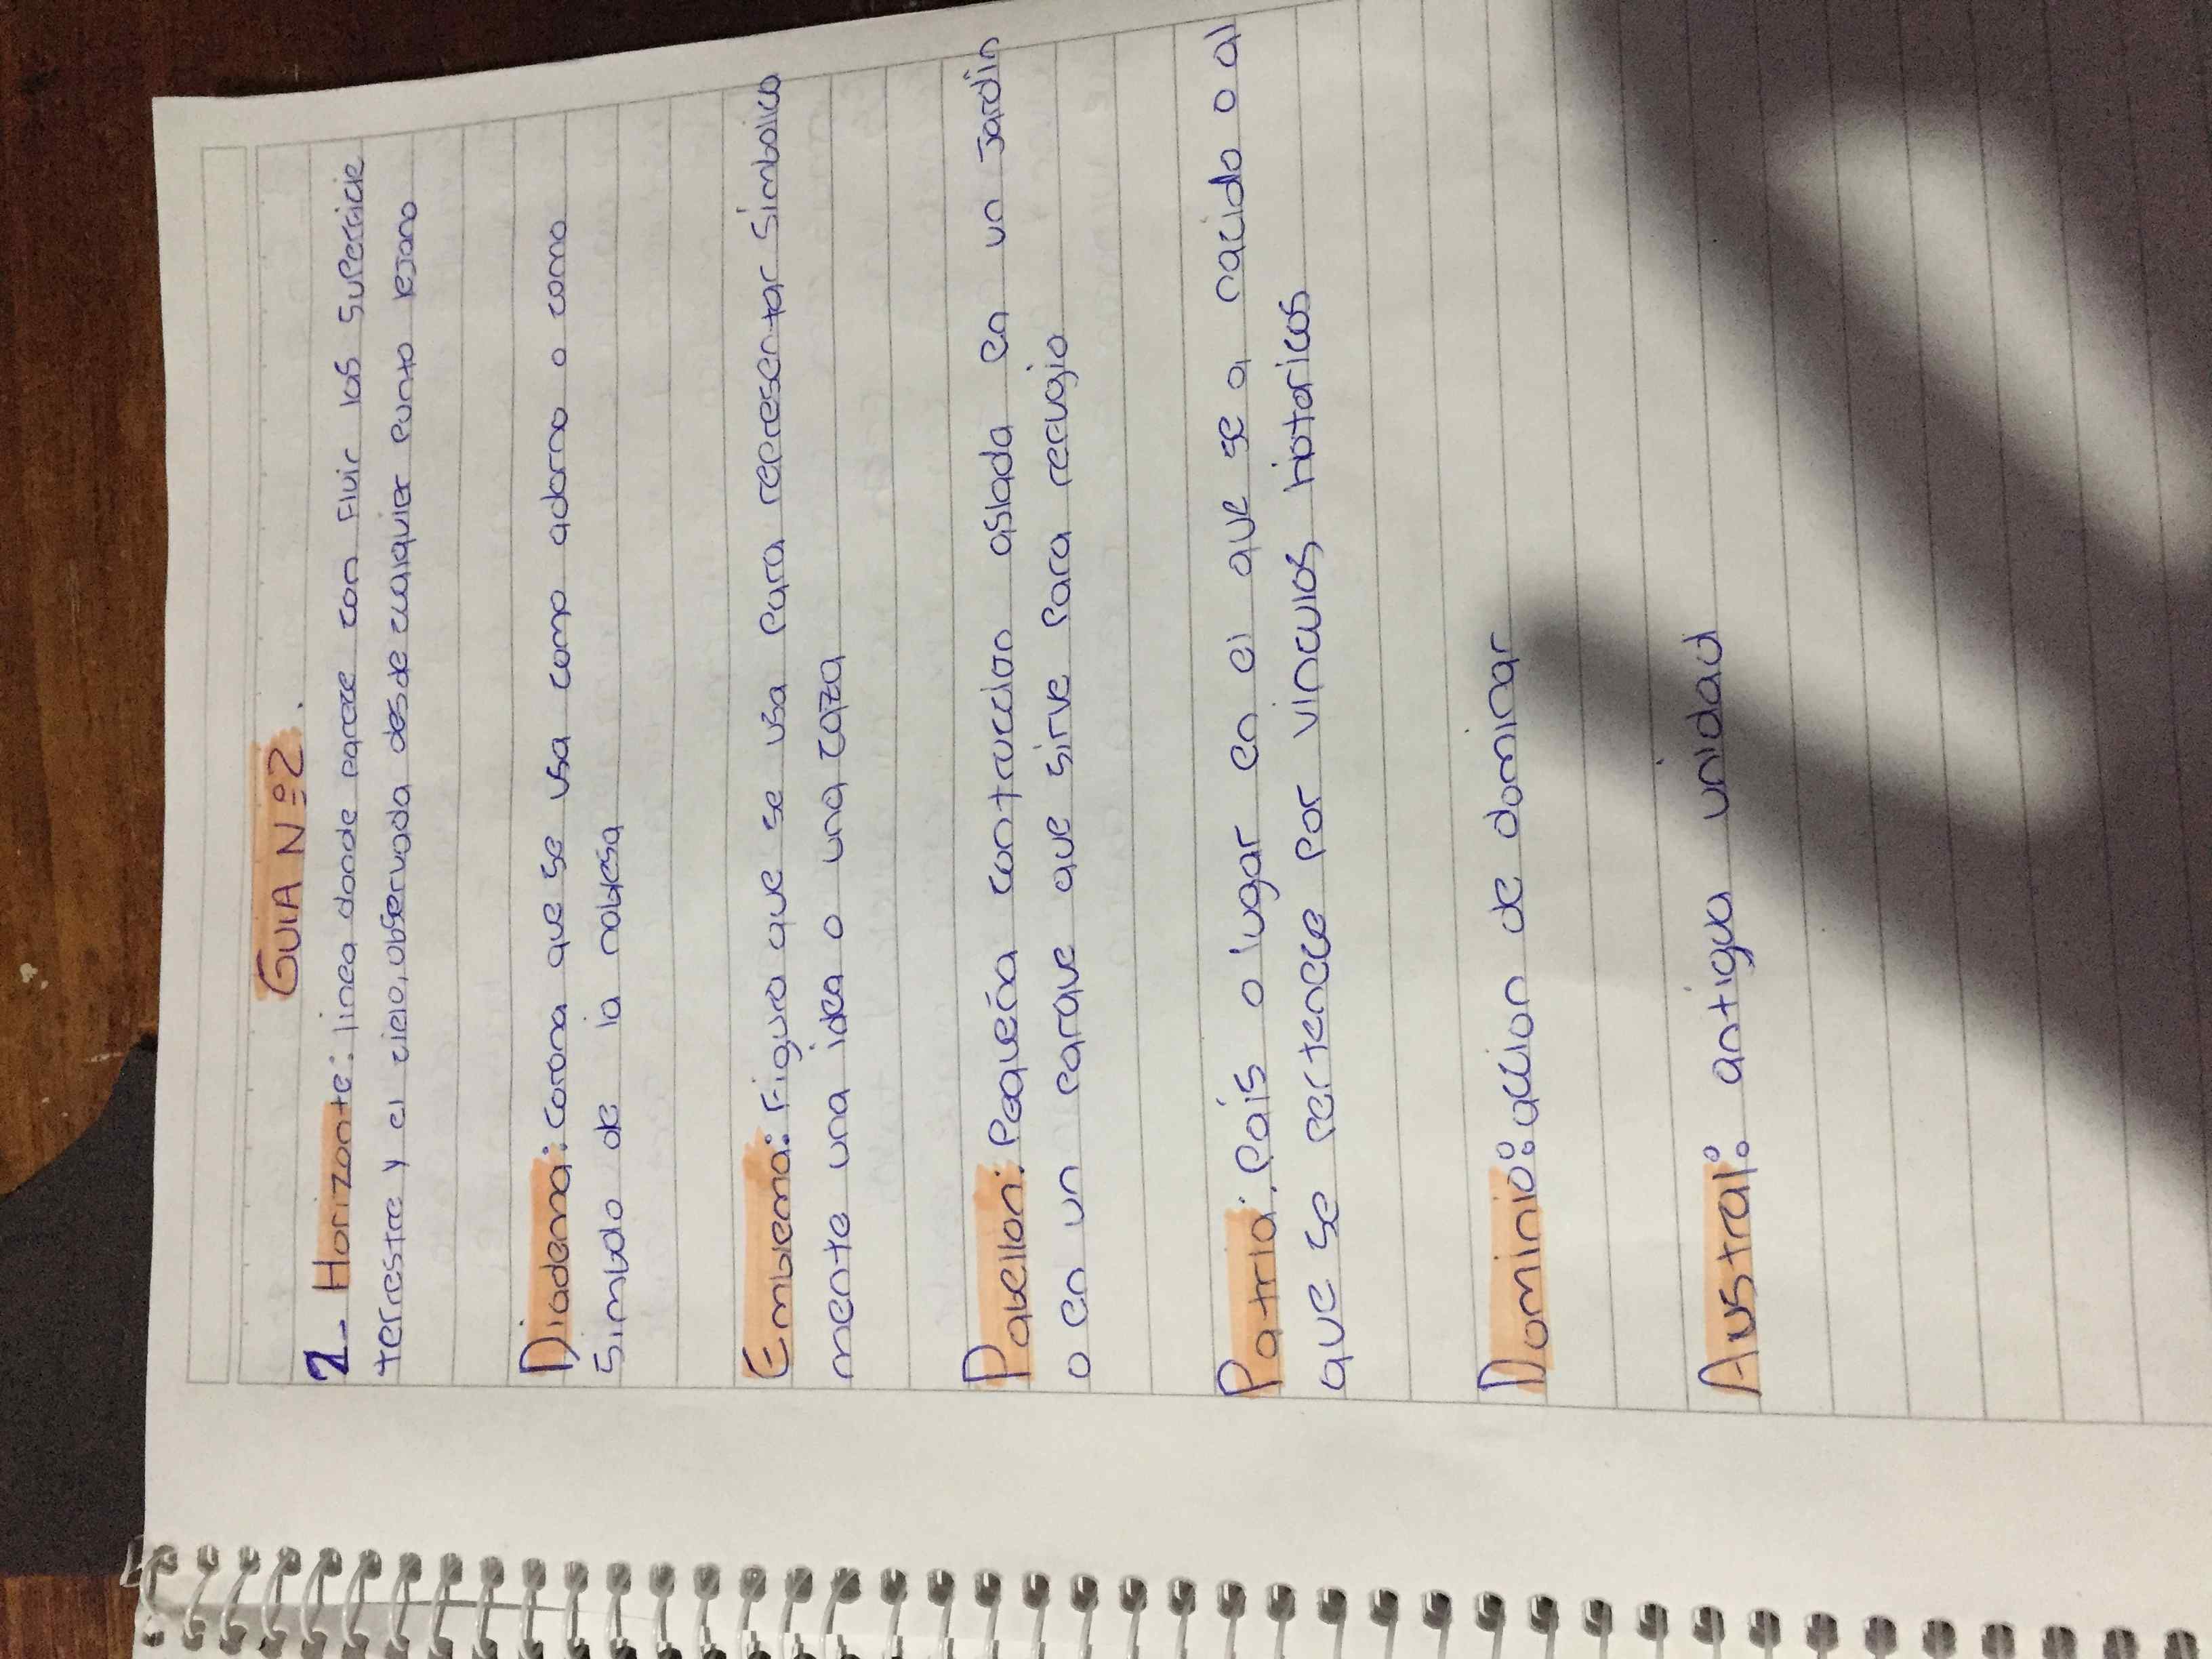 GUIA Nº2.
2- Horizonte: linea donde parece con Fluir las superficie
terrestre y el cielo, observada desde cualquier punto lejano
Diadema: corona que se usa como adorno o como
simbolo de la noblesa
Emblema: Figura que se usa para representar simbolico
mente una idea o una caza
Pabellon: Pequeña contruccion aslada en un Jardin
o en un parque que sirve para refugio
Patria: País o lugar en el que se a nacido o al
que se pertenece por vinculos hotoricos
Dominio: accion de dominar
Austral: antigua unidad